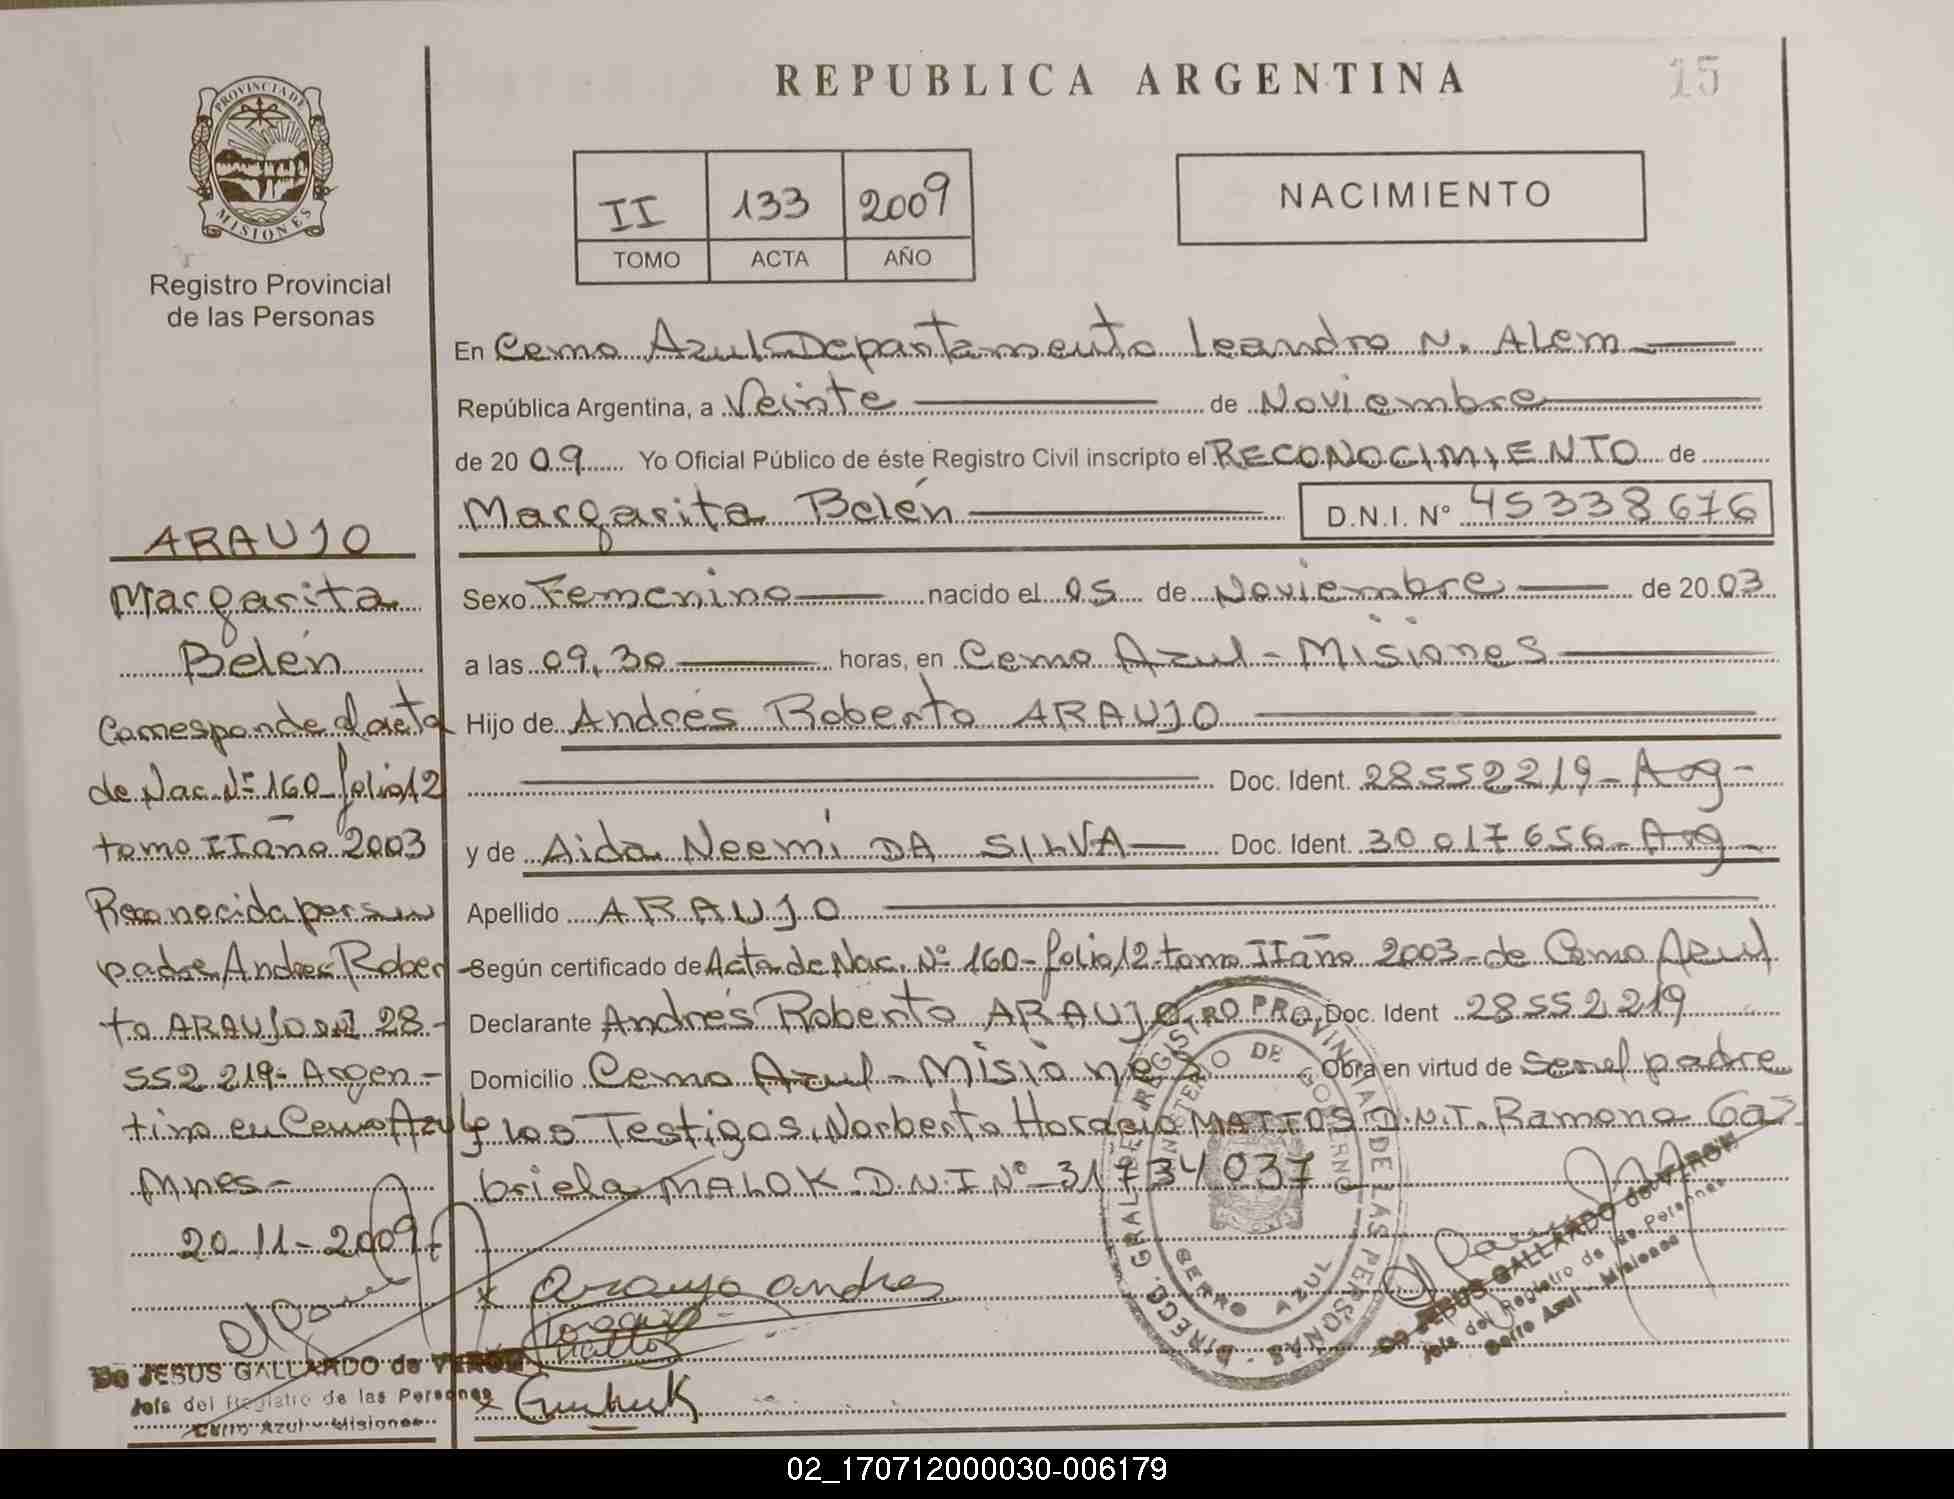 REPUBLICA ARGENTINA
15
PROVINCIA DE
MISIONES
Registro Provincial
de las Personas
II 133 2009
TOMO ACTA AÑO
NACIMIENTO
En Cerro Azul Departamento Leandro N. Alem
República Argentina, a Veinte de Noviembre
de 2009 Yo Oficial Público de éste Registro Civil inscripto el RECONOCIMIENTO de
Margarita Belén D.N.I. Nº 45338676
Sexo Femenino nacido el 05 de Noviembre de 2003
a las 09,30 horas, en Cerro Azul - Misiones
Hijo de Andrés Roberto ARAUJO
Doc. Ident. 28552219 - Arg -
y de Aida Neemí DA SILVA Doc. Ident. 30017656 - Arg -
Apellido ARAUJO
Según certificado de Acta de Nac. Nº 160 - folio 12 tomo II año 2003 - de Cerro Azul
Declarante Andrés Roberto ARAUJO Doc. Ident 28552219
Domicilio Cerro Azul - Misiones Obra en virtud de ser el padre
y los Testigos, Norberto Horacio MATTOS D.N.I. Ramona Ga
briela MALOK D.N.I Nº 31734037
araujo andres
ARAUJO
Margarita
Belén
Corresponde al acta
de Nac. Nº 160 folio 12
tomo II año 2003
Reconocida por su
padre Andrés Rober
to ARAUJO DNI 28
552 219 - Argen -
tino en Cerro Azul
Mnes -
20 - 11 - 2009
De JESUS GALLARDO de VERON
Jefe del Registro de las Personas
Cerro Azul - Misiones
DIRECC. GRAL. DE REGISTRO PROVINCIAL DE LAS PERSONAS
MINISTERIO DE GOBIERNO
CERRO AZUL
De JESUS GALLARDO de VERON
Jefe del Registro de las Personas
Cerro Azul - Misiones
02_170712000030-006179